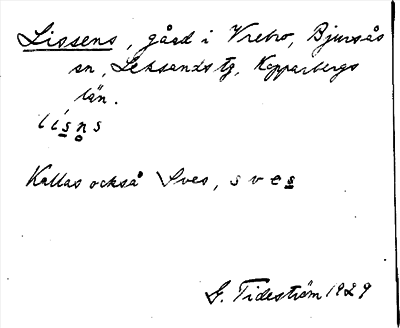 Lissens, gård i Vrebro, Bjursås
sn, Leksands tg, Kopparbergs
län.
lísn̥s
Kallas också Sves, sves
G. Tideström 1929